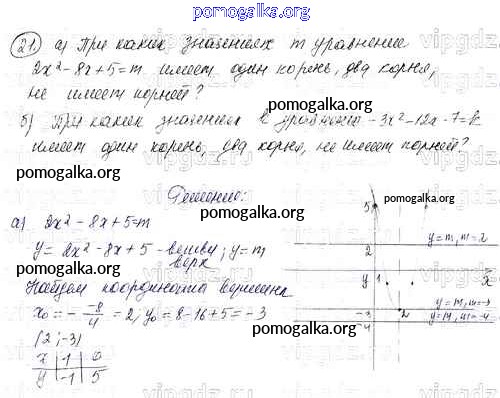 pomogalka.org
21. а) При каких значениях m уравнение
2x² - 8x + 5 = m имеет один корень, два корня,
не имеет корней?
pomogalka.org
б) При каких значениях k уравнение -3x² - 12x - 7 = k
имеет один корень, два корня, не имеет корней?
pomogalka.org
Решение:
pomogalka.org
а) 2x² - 8x + 5 = m
y = 2x² - 8x + 5 - ветви вверх; y = m
pomogalka.org
Найдем координаты вершины
x₀ = - -8/4 = 2; y₀ = 8 - 16 + 5 = -3
(2; -3)
x | 1 | 0
y | -1 | 5
pomogalka.org
5
y = m, m = 2
2
y 1 x
y = m, m = -3
-3 2
y = m, m = -4
-4
pomogalka.org
vipgdz